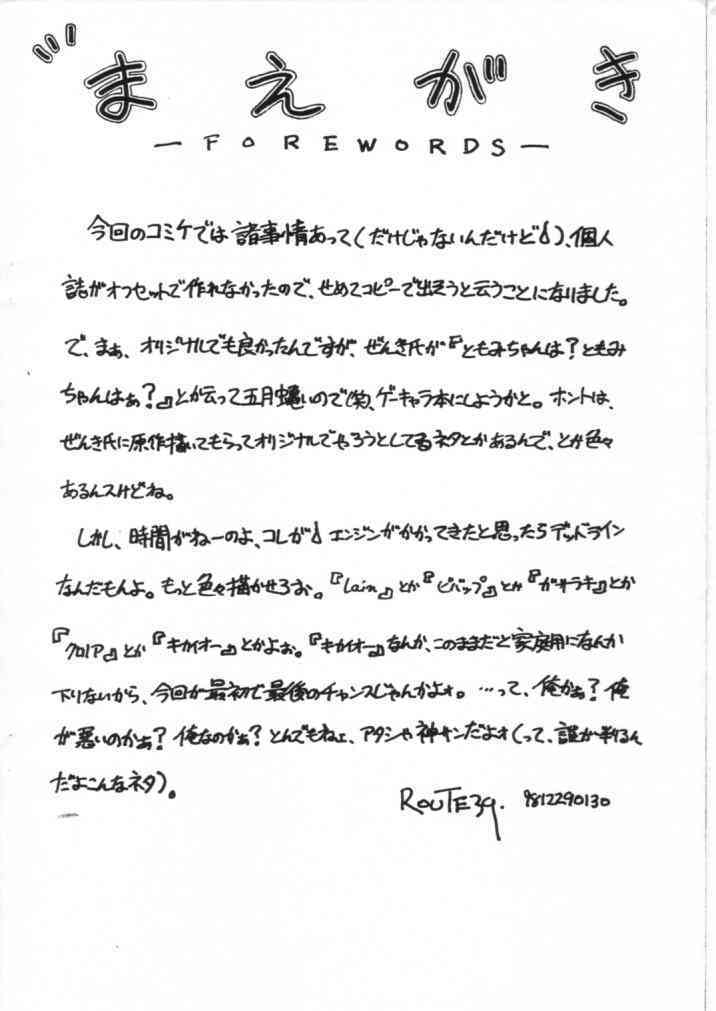 まえがき
— FOREWORDS —
今回のコミケでは諸事情あって(だけじゃないんだけど!)、個人
誌がオフセットで作れなかったので、せめてコピーで出そうと云うことになりました。
で、まぁ、オリジナルでも良かったんですが、ぜんき氏が『ともみちゃんは?ともみ
ちゃんはぁ?』とか云って五月蠅いので(笑)、ゲーキャラ本にしようかと。ホントは、
ぜんき氏に原作描いてもらってオリジナルでやろうとしてるネタとかあるんで、とか色々
あるんスけどね。
しかし、時間がねーのよ、コレが!エンジンがかかってきたと思ったらデッドライン
なんだもんよ。もっと色々描かせろお。『lain』とか『ビバップ』とか『ガサラキ』とか
『クロノア』とか『キカイオー』とかよお。『キカイオー』なんか、このままだと家庭用になんか
下りないから、今回が最初で最後のチャンスじゃんかよォ。…って、俺かぁ?俺
が悪いのかぁ?俺なのかぁ?とんでもねェ、アタシャ神サンだよォ(って、誰が判るん
だよこんなネタ)。
ROUTE39. 9812290130